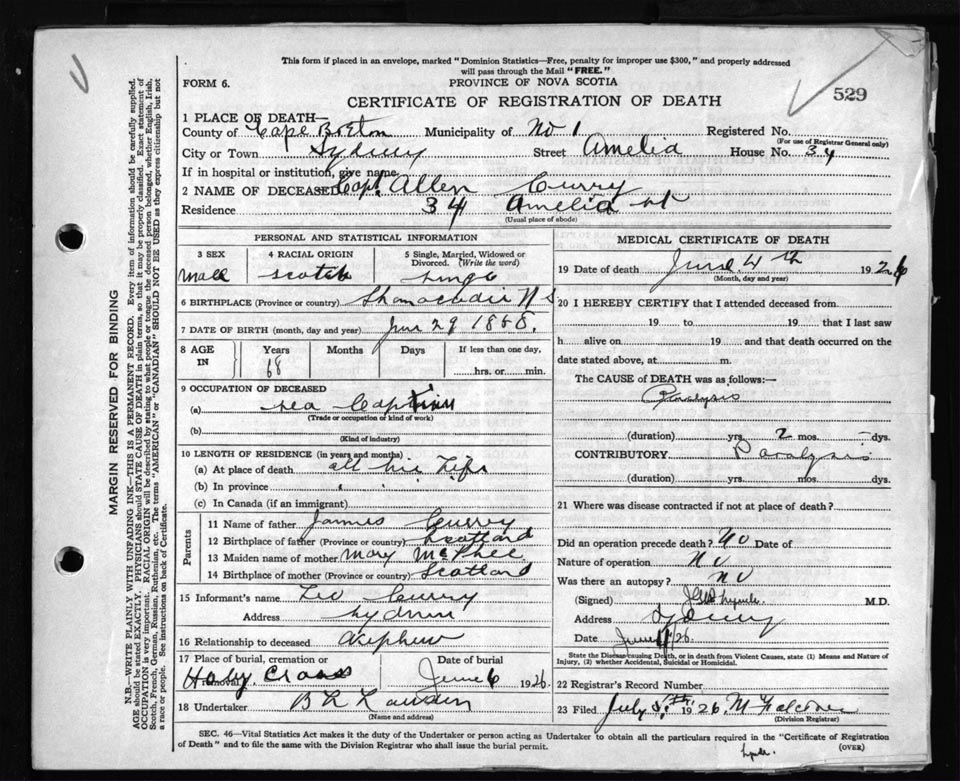 This form if placed in an envelope, marked "Dominion Statistics—Free, penalty for improper use $300," and properly addressed
will pass through the Mail "FREE."
FORM 6.
PROVINCE OF NOVA SCOTIA
CERTIFICATE OF REGISTRATION OF DEATH
529
1 PLACE OF DEATH—
County of Cape Breton Municipality of No 1 Registered No.
(For use of Registrar General only)
City or Town Sydney Street Amelia House No. 34
If in hospital or institution, give name
2 NAME OF DECEASED Capt. Allen Curry
Residence 34 Amelia st
(Usual place of abode)
PERSONAL AND STATISTICAL INFORMATION
3 SEX
male
4 RACIAL ORIGIN
Scotch
5 Single, Married, Widowed or Divorced. (Write the word)
Single
6 BIRTHPLACE (Province or country) N S
7 DATE OF BIRTH (month, day and year) 29 1858.
8 AGE IN
Years 68
Months
Days
If less than one day,
hrs. or min.
9 OCCUPATION OF DECEASED
(a) Sea Captain
(Trade or occupation or kind of work)
(b)
(Kind of industry)
10 LENGTH OF RESIDENCE (in years and months)
(a) At place of death all his Life
(b) In province
(c) In Canada (if an immigrant)
Parents
11 Name of father James Curry
12 Birthplace of father (Province or country) Scotland
13 Maiden name of mother Mary McPhee
14 Birthplace of mother (Province or country) Scotland
15 Informant's name Leo Curry
Address Sydney
16 Relationship to deceased Nephew
17 Place of burial, cremation or removal Holy Cross
Date of burial June 6 1926
18 Undertaker B L
(Name and address)
MEDICAL CERTIFICATE OF DEATH
19 Date of death June 4 th 1926
(Month, day and year)
20 I HEREBY CERTIFY that I attended deceased from
19 to 19 that I last saw
h alive on 19 and that death occurred on the
date stated above, at m.
The CAUSE OF DEATH was as follows:—
Paralysis
(duration) yrs. 2 mos. dys.
CONTRIBUTORY Paralysis
(duration) yrs. mos. dys.
21 Where was disease contracted if not at place of death?
Did an operation precede death? No Date of
Nature of operation No
Was there an autopsy? No
(Signed) M.D.
Address Sydney
Date June 26
State the Disease causing Death, or in death from Violent Causes, state (1) Means and Nature of
Injury, (2) whether Accidental, Suicidal or Homicidal.
22 Registrar's Record Number
23 Filed July 1926
(Division Registrar)
SEC. 46—Vital Statistics Act makes it the duty of the Undertaker or person acting as Undertaker to obtain all the particulars required in the "Certificate of Registration
of Death" and to file the same with the Division Registrar who shall issue the burial permit.
(OVER)
MARGIN RESERVED FOR BINDING
N.B.—WRITE PLAINLY WITH UNFADING INK—THIS IS A PERMANENT RECORD. Every item of information should be carefully supplied.
AGE should be stated EXACTLY. PHYSICIANS should STATE CAUSE OF DEATH in plain terms, so that it may be properly classified. Exact statement of
OCCUPATION is very important. RACIAL ORIGIN will be described by stating to what people or tongue the deceased person belonged, whether English, Irish,
Scotch, French, German, Russian, Ruthenian, etc. The terms "AMERICAN" or "CANADIAN" SHOULD NOT BE USED as they express citizenship but not
a race or people. See instructions on back of Certificate.